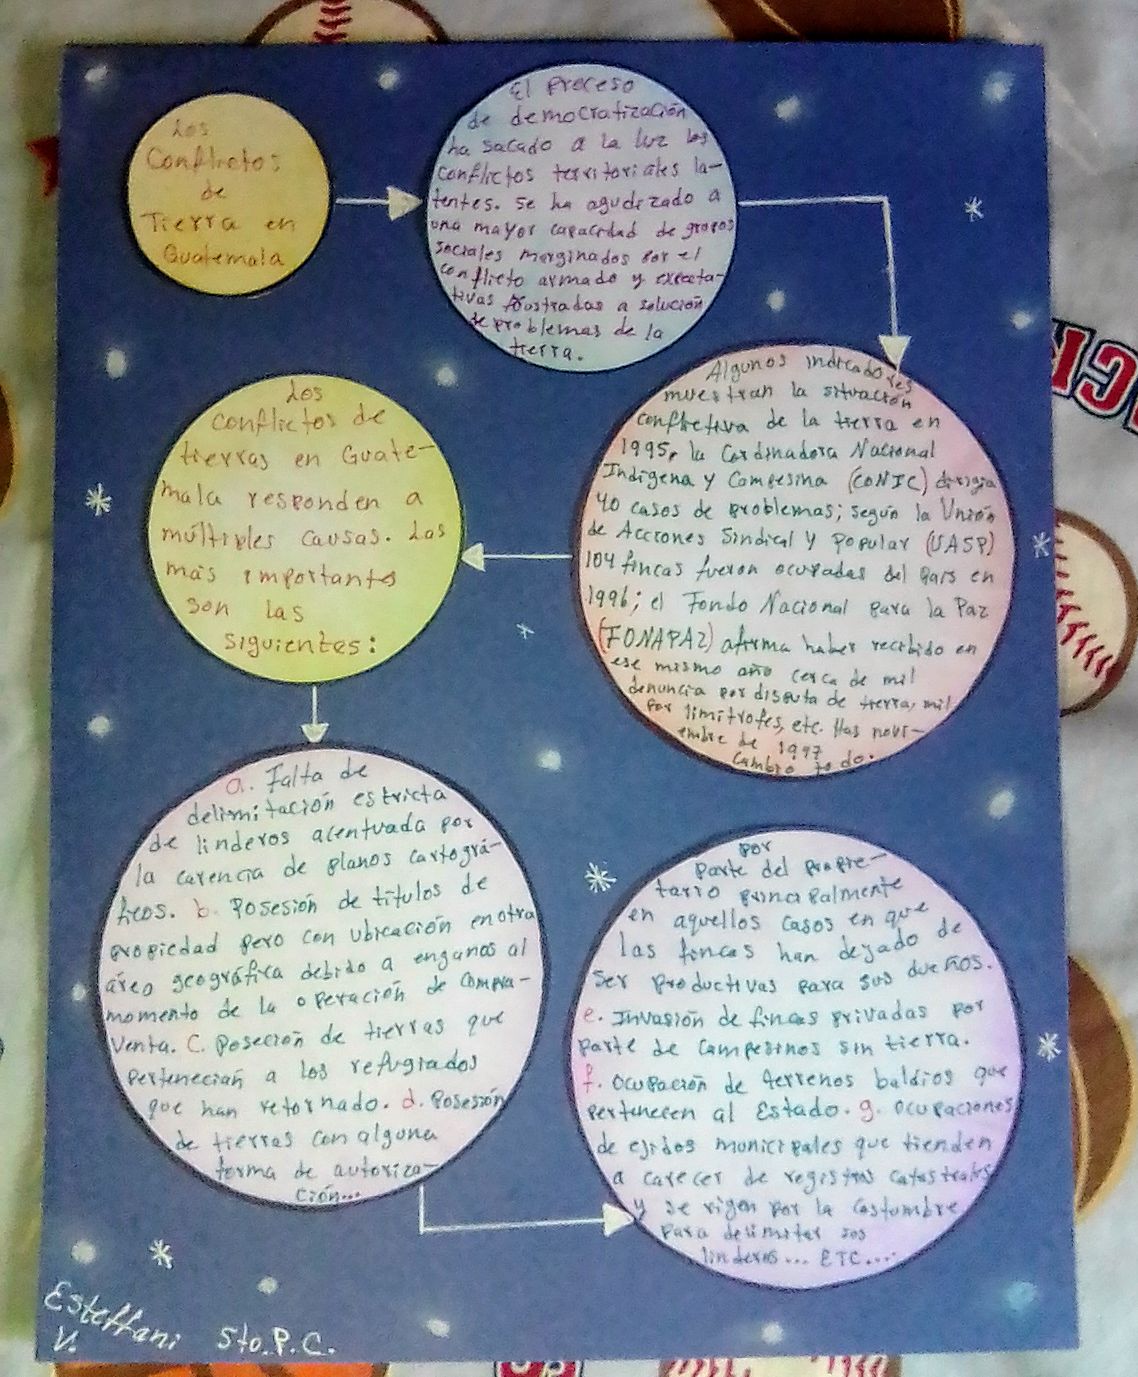 Los
Conflictos
de
Tierra en
Guatemala
El Proceso
de democratización
ha sacado a la luz los
conflictos territoriales la-
tentes. se ha agudizado a
una mayor capacidad de grupos
sociales marginados por el
conflicto armado y expecta-
tivas frustradas a solución
de problemas de la
tierra.
Algunos indicadores
muestran la situación
conflictiva de la tierra en
1995, la Cordinadora Nacional
Indígena y Campesina (CONIC) dirigia
40 casos de problemas; según la Unión
de Acciones Sindical y Popular (UASP)
104 fincas fueron ocupadas del país en
1996; el Fondo Nacional para la Paz
(FONAPAZ) afirma haber recibido en
ese mismo año cerca de mil
denuncia por disputa de tierra, mil
por limítrofes, etc. Has novi-
embre de 1997
cambio todo.
Los
conflictos de
tierras en Guate-
mala responden a
múltiples causas. Las
más importantes
son las
siguientes:
a. Falta de
delimitación estricta
de linderos acentuada por
la carencia de planos cartográ-
ficos. b. Posesión de títulos de
propiedad pero con ubicación en otra
área geográfica debido a enganos al
momento de la operación de compra-
venta. C. Poseción de tierras que
pertenecian a los refugiados
que han retornado. d. Posesión
de tierras con alguna
forma de autoriza-
ción...
por
parte del propie-
tario principalmente
en aquellos casos en que
las fincas han dejado de
ser productivas para sus dueños.
e. Invasión de fincas privadas por
parte de campesinos sin tierra.
f. Ocupación de terrenos baldios que
pertenecen al Estado. g. Ocupaciones
de ejidos municipales que tienden
a carecer de registros catastrales
y se rigen por la costumbre
para delimitar sus
linderos... ETC....
Esteffani
V.
5to. P.C.